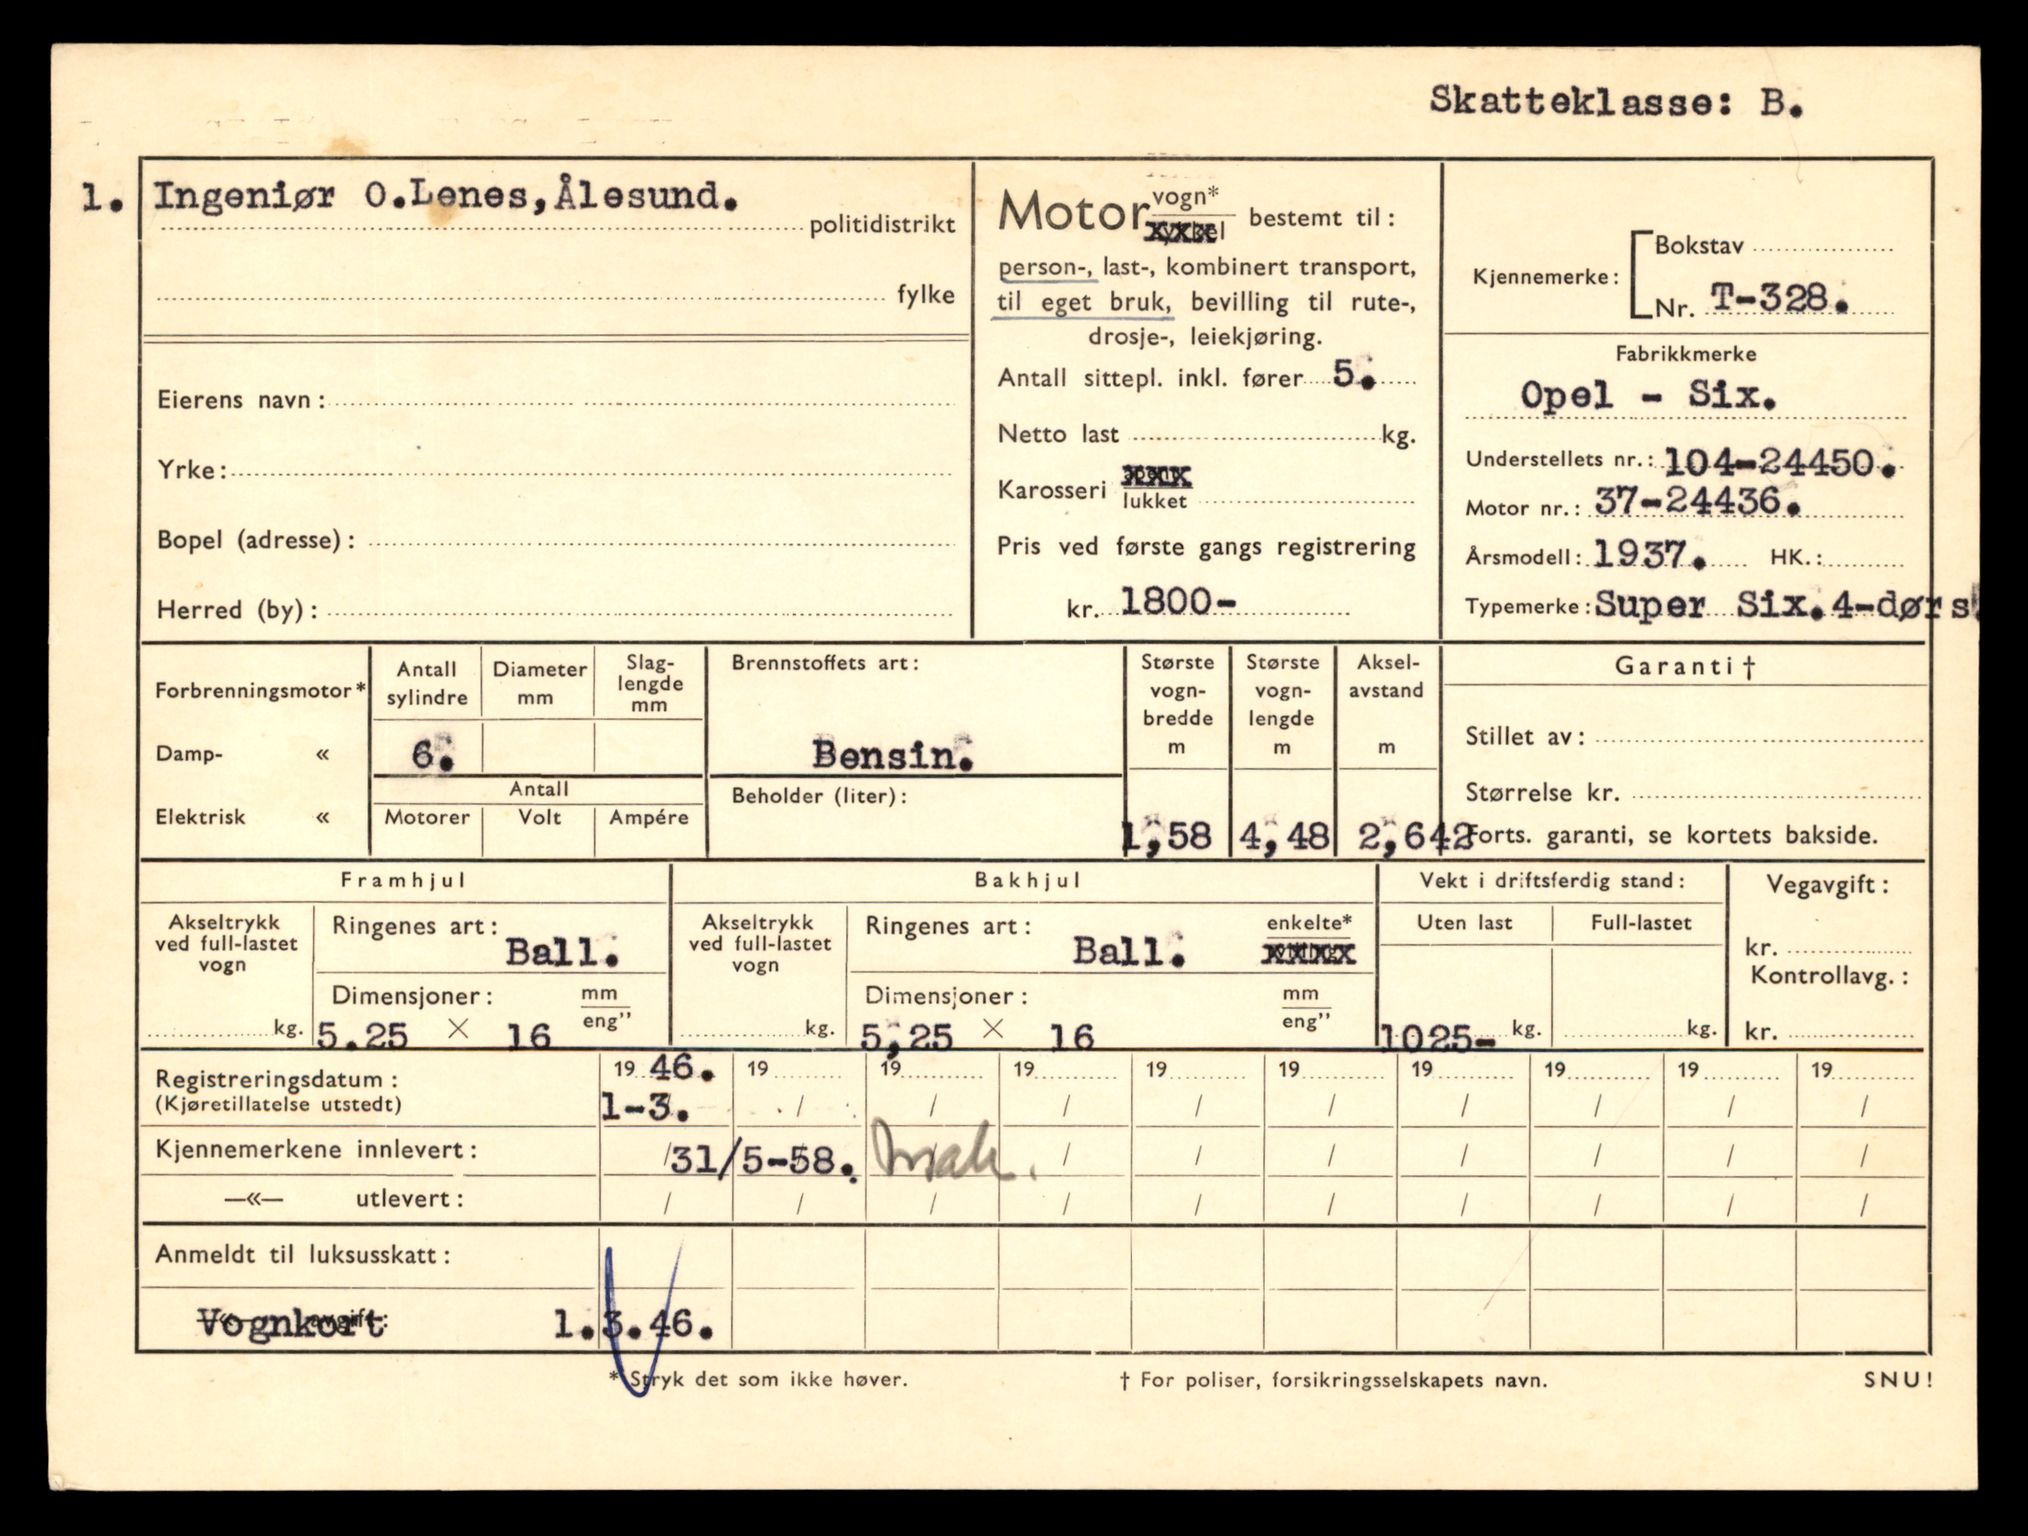 Skatteklasse: B.
1. Ingeniør O.Lenes, Ålesund.
politidistrikt
fylke
Eierens navn:
Yrke:
Bopel (adresse):
Herred (by):
Motor vogn* bestemt til:
person-, last-, kombinert transport,
til eget bruk, bevilling til rute-,
drosje-, leiekjøring.
Antall sittepl. inkl. fører 5.
Netto last kg.
Karosseri
lukket
Pris ved første gangs registrering
kr. 1800-
Kjennemerke: Bokstav
Nr. T-328.
Fabrikkmerke
Opel - Six.
Understellets nr.: 104-24450.
Motor nr.: 37-24436.
Årsmodell: 1937. HK.:
Typemerke: Super Six. 4-dørs.
Forbrenningsmotor*
Damp- «
Elektrisk «
Antall sylindre
6.
Diameter mm
Slag-lengde mm
Antall
Motorer Volt Ampére
Brennstoffets art:
Bensin.
Beholder (liter):
Største vogn-bredde m
1,58
Største vogn-lengde m
4,48
Aksel-avstand m
2,642
Garanti †
Stillet av:
Størrelse kr.
Forts. garanti, se kortets bakside.
Framhjul
Akseltrykk ved full-lastet vogn
kg.
Ringenes art: Ball.
Dimensjoner: mm eng"
5.25 × 16
Bakhjul
Akseltrykk ved full-lastet vogn
kg.
Ringenes art: Ball. enkelte*
Dimensjoner: mm eng"
5,25 × 16
Vekt i driftsferdig stand:
Uten last Full-lastet
1025- kg. kg.
Vegavgift:
kr.
Kontrollavg.:
kr.
Registreringsdatum: 19 46. 19 19 19 19 19 19 19 19 19
(Kjøretillatelse utstedt) 1-3. / / / / / / / / /
Kjennemerkene innlevert: / 31/5-58. / / / / / / /
—«— utlevert: / / / / / / / / / /
Anmeldt til luksusskatt:
Vognkort 1.3.46.
* Stryk det som ikke høver.
† For poliser, forsikringsselskapets navn.
SNU!